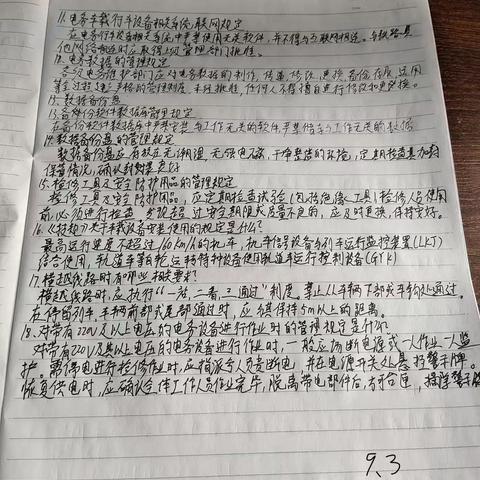 11.电务车载行车设备相关系统联网规定
在电务行车设备相关系统中严禁使用无关软件,并不得与互联网相连。与铁路其
他网络相连时应取得上级管理部门批准。
12.电务数据的管理规定
各级电务维护部门应对电务数据的制作、修改、更换、备份存放、运用
等全过程建立严格的管理制度,未经批准,任何人不得擅自进行修改和更换。
13.数据备份
13.备份软件数据库管理规定
在备份软件数据库中严禁安装与工作无关的软件,严禁储存与工作无关的数据
14.数据备份盘的管理规定
数据备份盘应存放在无潮湿、无强电磁、干净整洁的环境,定期检查其加封
保管情况,确认封印良好
15.检修工具及安全防护用品的管理规定
检修工具及安全防护用品,应定期检查试验(包括绝缘工具)检修人员使用
前,必须进行检查,发现超过安全期限或质量不良的,应及时更换,保持完好。
16.《技规》关于车载设备使用的规定是什么?
最高运行速度不超过160km/h的机车,机车信号设备与列车运行监控装置(LKJ)
结合使用,轨道车等自轮运转特种设备使用轨道车运行控制设备(GYK)
17.横越线路时有哪些相关要求?
横越线路时,应执行“一站、二看、三通过”制度。禁止从车辆下部或车钩处通过。
在停留列车、车辆前部或尾部通过时,应与其保持5m以上的距离。
18.对带有220V及以上电压的电务设备进行作业时的管理规定是什么?
对带有220V及其以上电压的电务设备进行作业时,一般应切断电源或一人作业一人监
护。需停电进行检修作业时,应指派专人负责断电,并在电源开关处悬挂警示牌。
恢复供电时,应确认全体工作人员作业完毕,脱离带电部件后,方可合闸,摘除警示牌
9.3